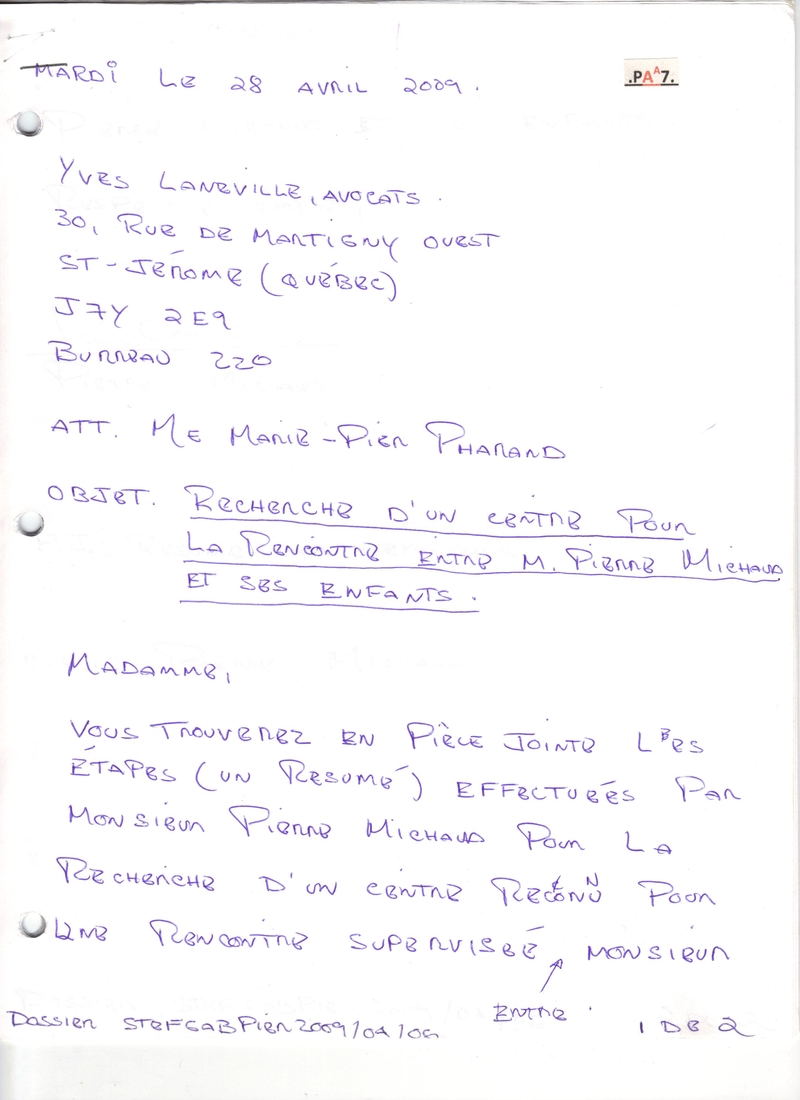 MARDI LE 28 AVRIL 2009.
.PAA7.
YVES LANEVILLE, AVOCATS.
30, RUE DE MARTIGNY OUEST
ST-JÉROME (QUÉBEC)
J7Y 2E9
BURREAU 220
ATT. ME MARIE-PIER PHARAND
OBJET. RECHERCHE D'UN CENTRE POUR
LA RENCONTRE ENTRE M. PIERRE MICHAUD
ET SES ENFANTS.
MADAMME,
VOUS TROUVEREZ EN PIÈCE JOINTE LES
ÉTAPES (UN RESUMÉ) EFFECTUÉES PAR
MONSIEUR PIERRE MICHAUD POUR LA
RECHERCHE D'UN CENTRE RECONNU POUR
UNE RENCONTRE SUPERVISEÉ MONSIEUR
ENTRE
DOSSIER STEFGABPIER2009/04/06
1 DE 2